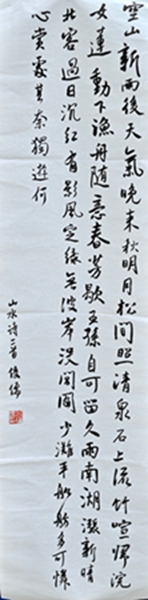 空山新雨後天氣晚來秋明月松間照清泉石上流竹喧歸浣
女蓮動下漁舟隨意春芳歇王孫自可留久雨南湖漲新晴
北客過日沉紅有影風定綠無波岸沒閭閻少灘平船舫多可憐
心賞處其奈獨遊何
山水詩二首